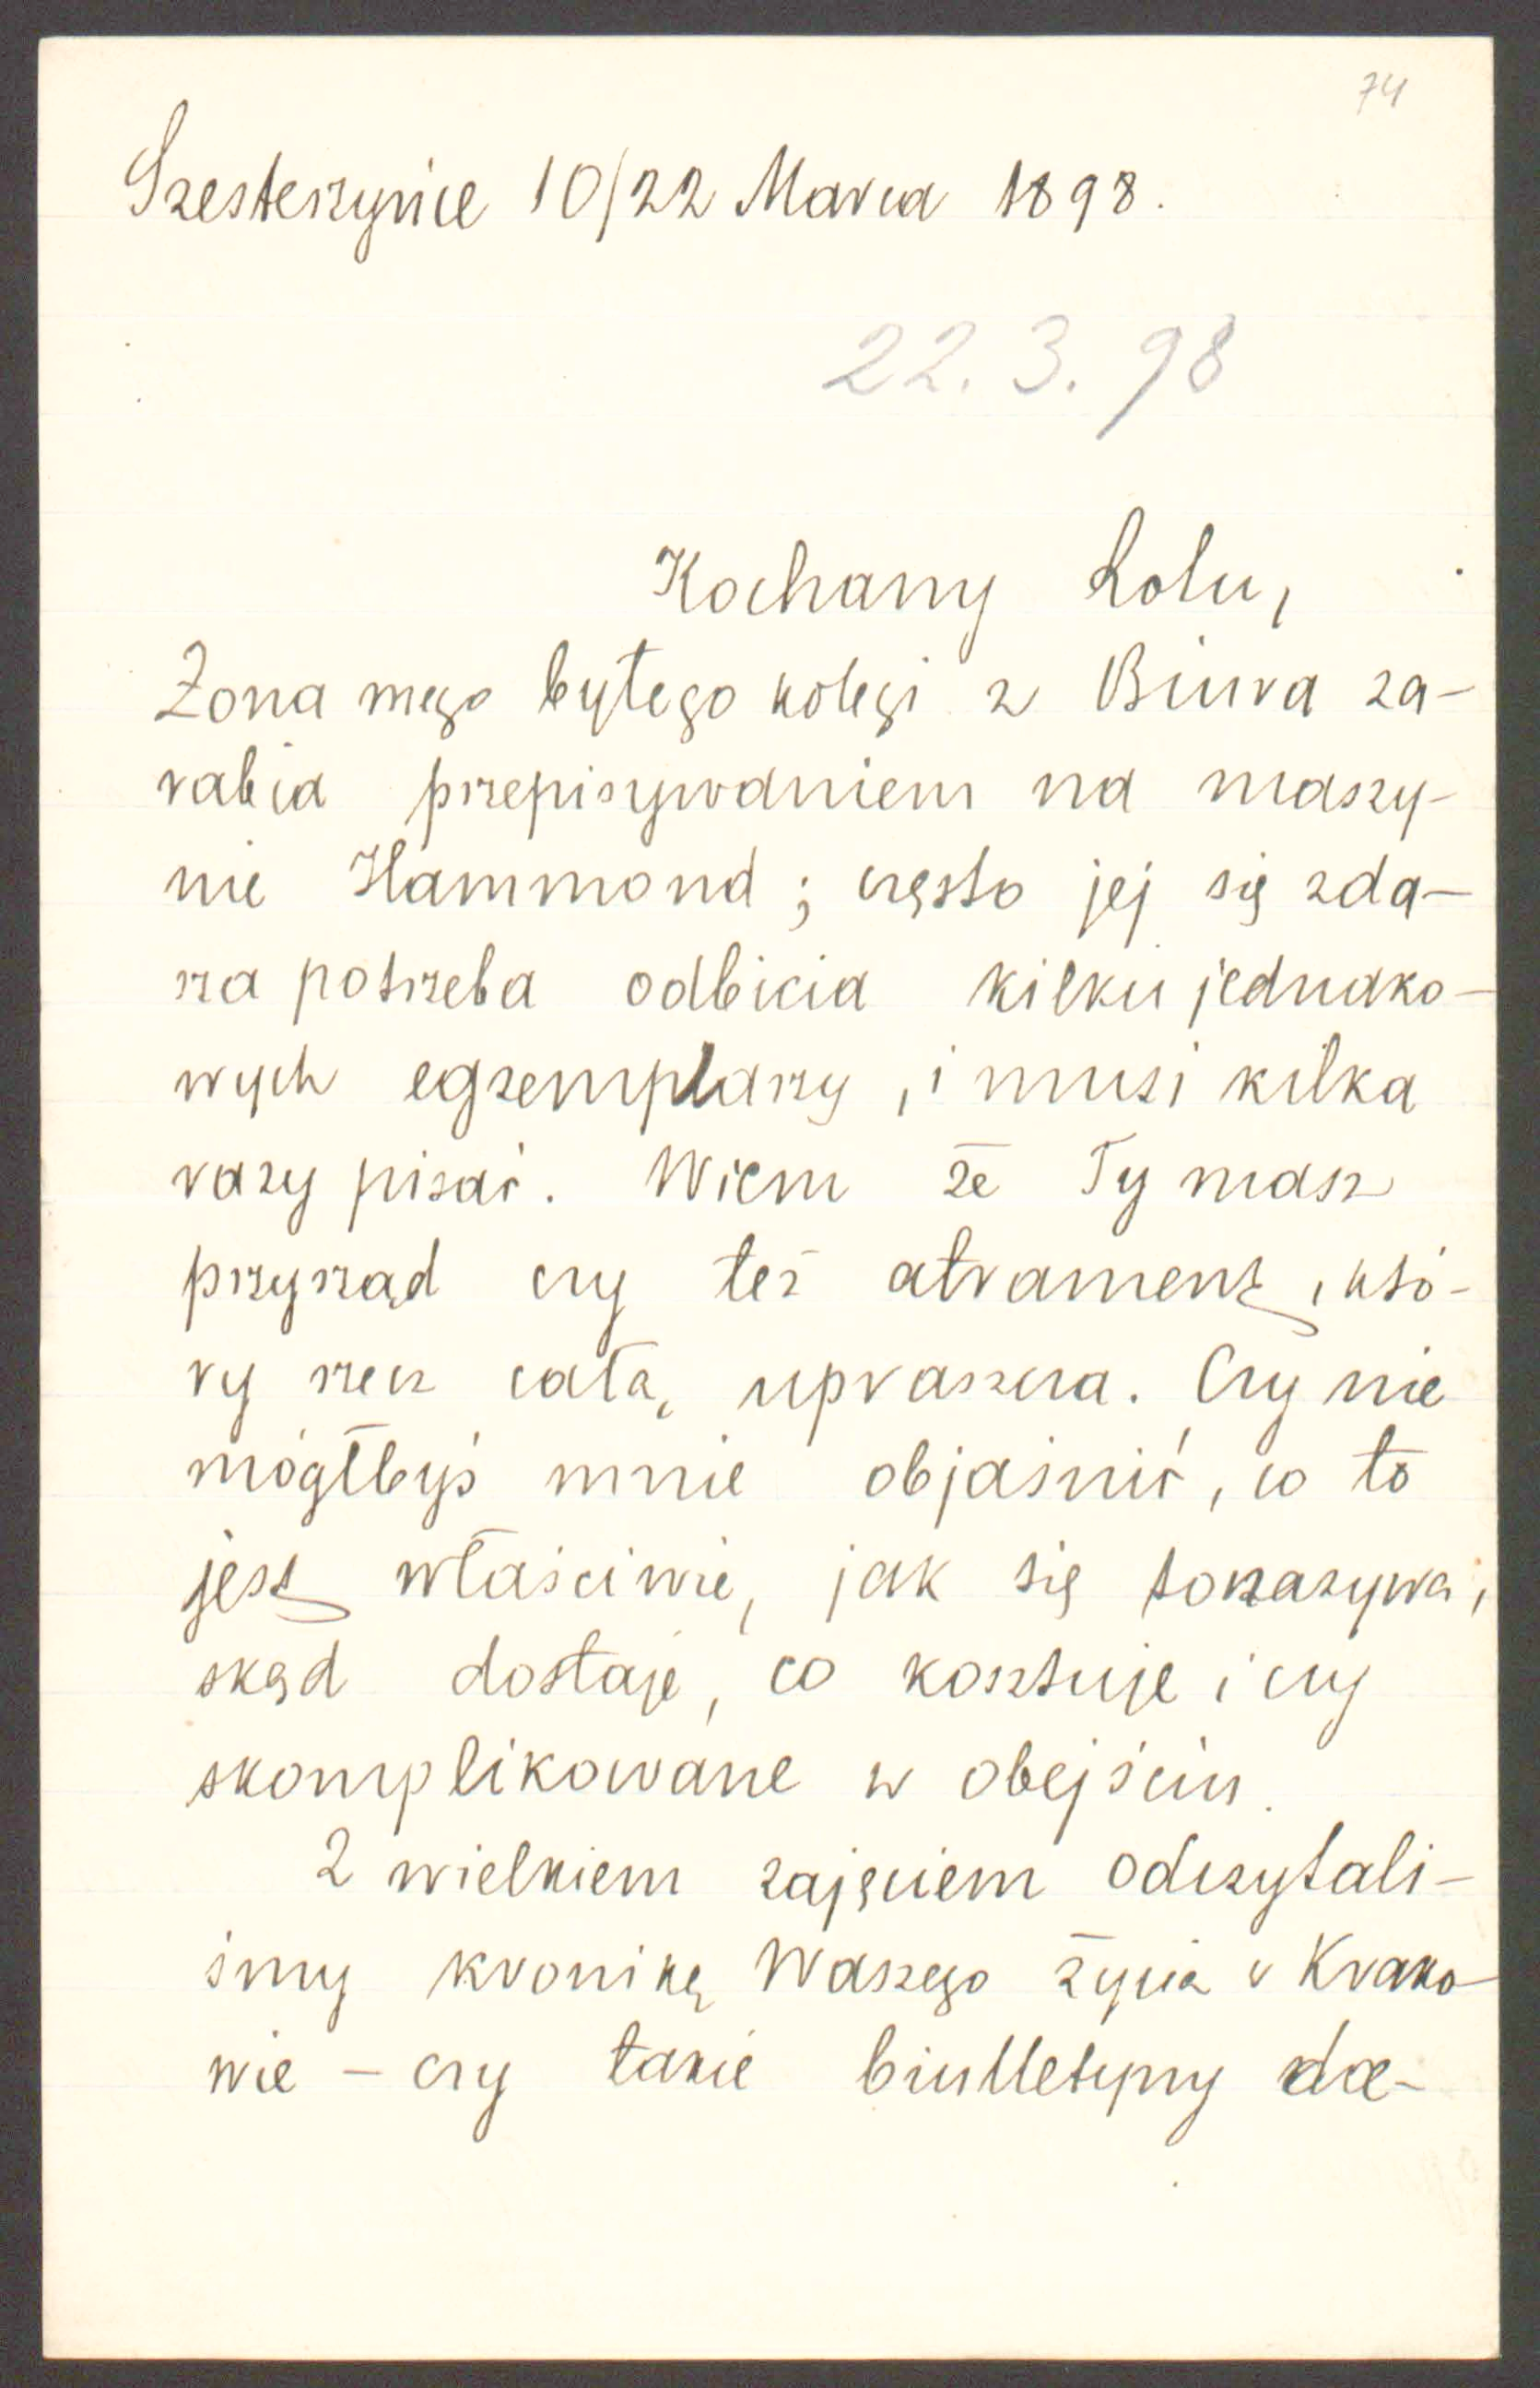 74
Szesterzyńce 10/22 Marca 1898.
22. 3. 98
Kochany Lolu,
Żona mego byłego kolegi z Biura za-
rabia przepisywaniem na maszy-
nie Hammond; często jej się zda-
rza potrzeba odbicia kilku jednako-
wych egzemplarzy, i musi kilka
razy pisać. Wiem że Ty masz
przyrząd czy też atrament, któ-
ry rzecz całą upraszcza. Czy nie
mógłbyś mnie objaśnić, co to
jest właściwie, jak się to nazywa,
skąd dostaje, co kosztuje i czy
skomplikowane w obejściu.
Z wielkiem zajęciem odczytali-
śmy kronikę Waszego życia w Krako-
wie – czy takie biulletyny do-